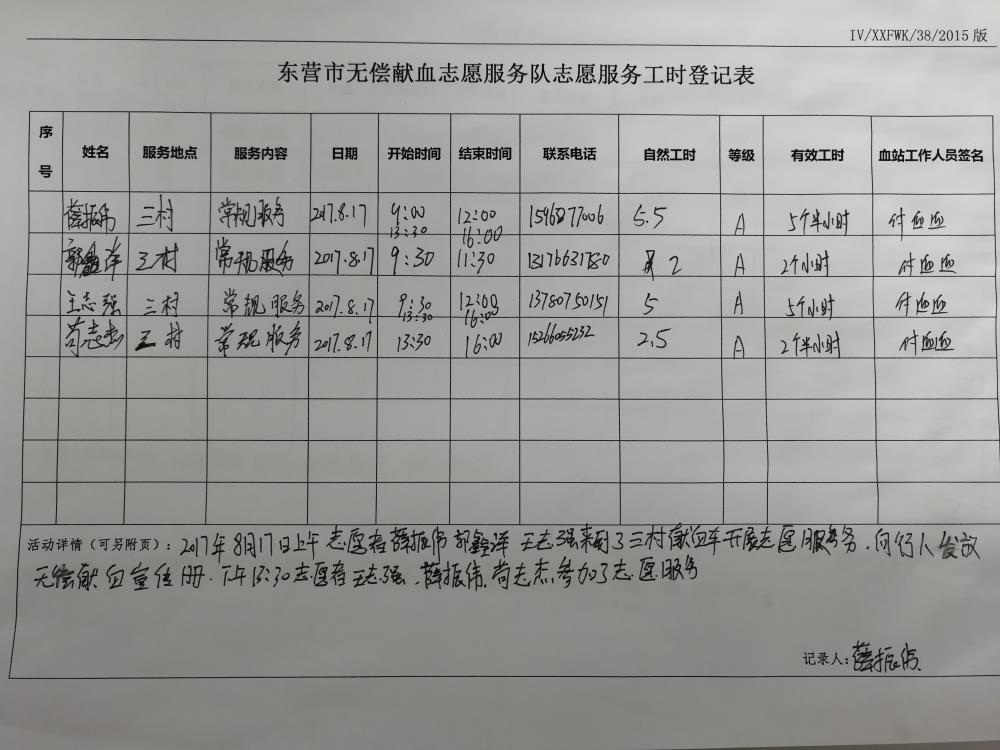 IV/XXFWK/38/2015版
东营市无偿献血志愿服务队志愿服务工时登记表
序号 姓名 服务地点 服务内容 日期 开始时间 结束时间 联系电话 自然工时 等级 有效工时 血站工作人员签名
薛振伟 三村 常规服务 2017.8.17 9:00 12:00 5.5 A 5个半小时 付血血
13:30 16:00
郭鑫洋 三村 常规服务 2017.8.17 9:30 11:30 2 A 2个小时 付血血
王志强 三村 常规服务 2017.8.17 9:30 12:00 13780750151 5 A 5个小时 付血血
13:30 16:00
苟志杰 三村 常规服务 2017.8.17 13:30 16:00 15266055232 2.5 A 2个半小时 付血血
活动详情（可另附页）：2017年8月17日上午志愿者薛振伟 郭鑫洋 王志强来到了三村献血车开展志愿服务务，向行人发放
无偿献血宣传册.下午13:30志愿者王志强、薛振伟、苟志杰参加了志愿服务
记录人：薛振伟